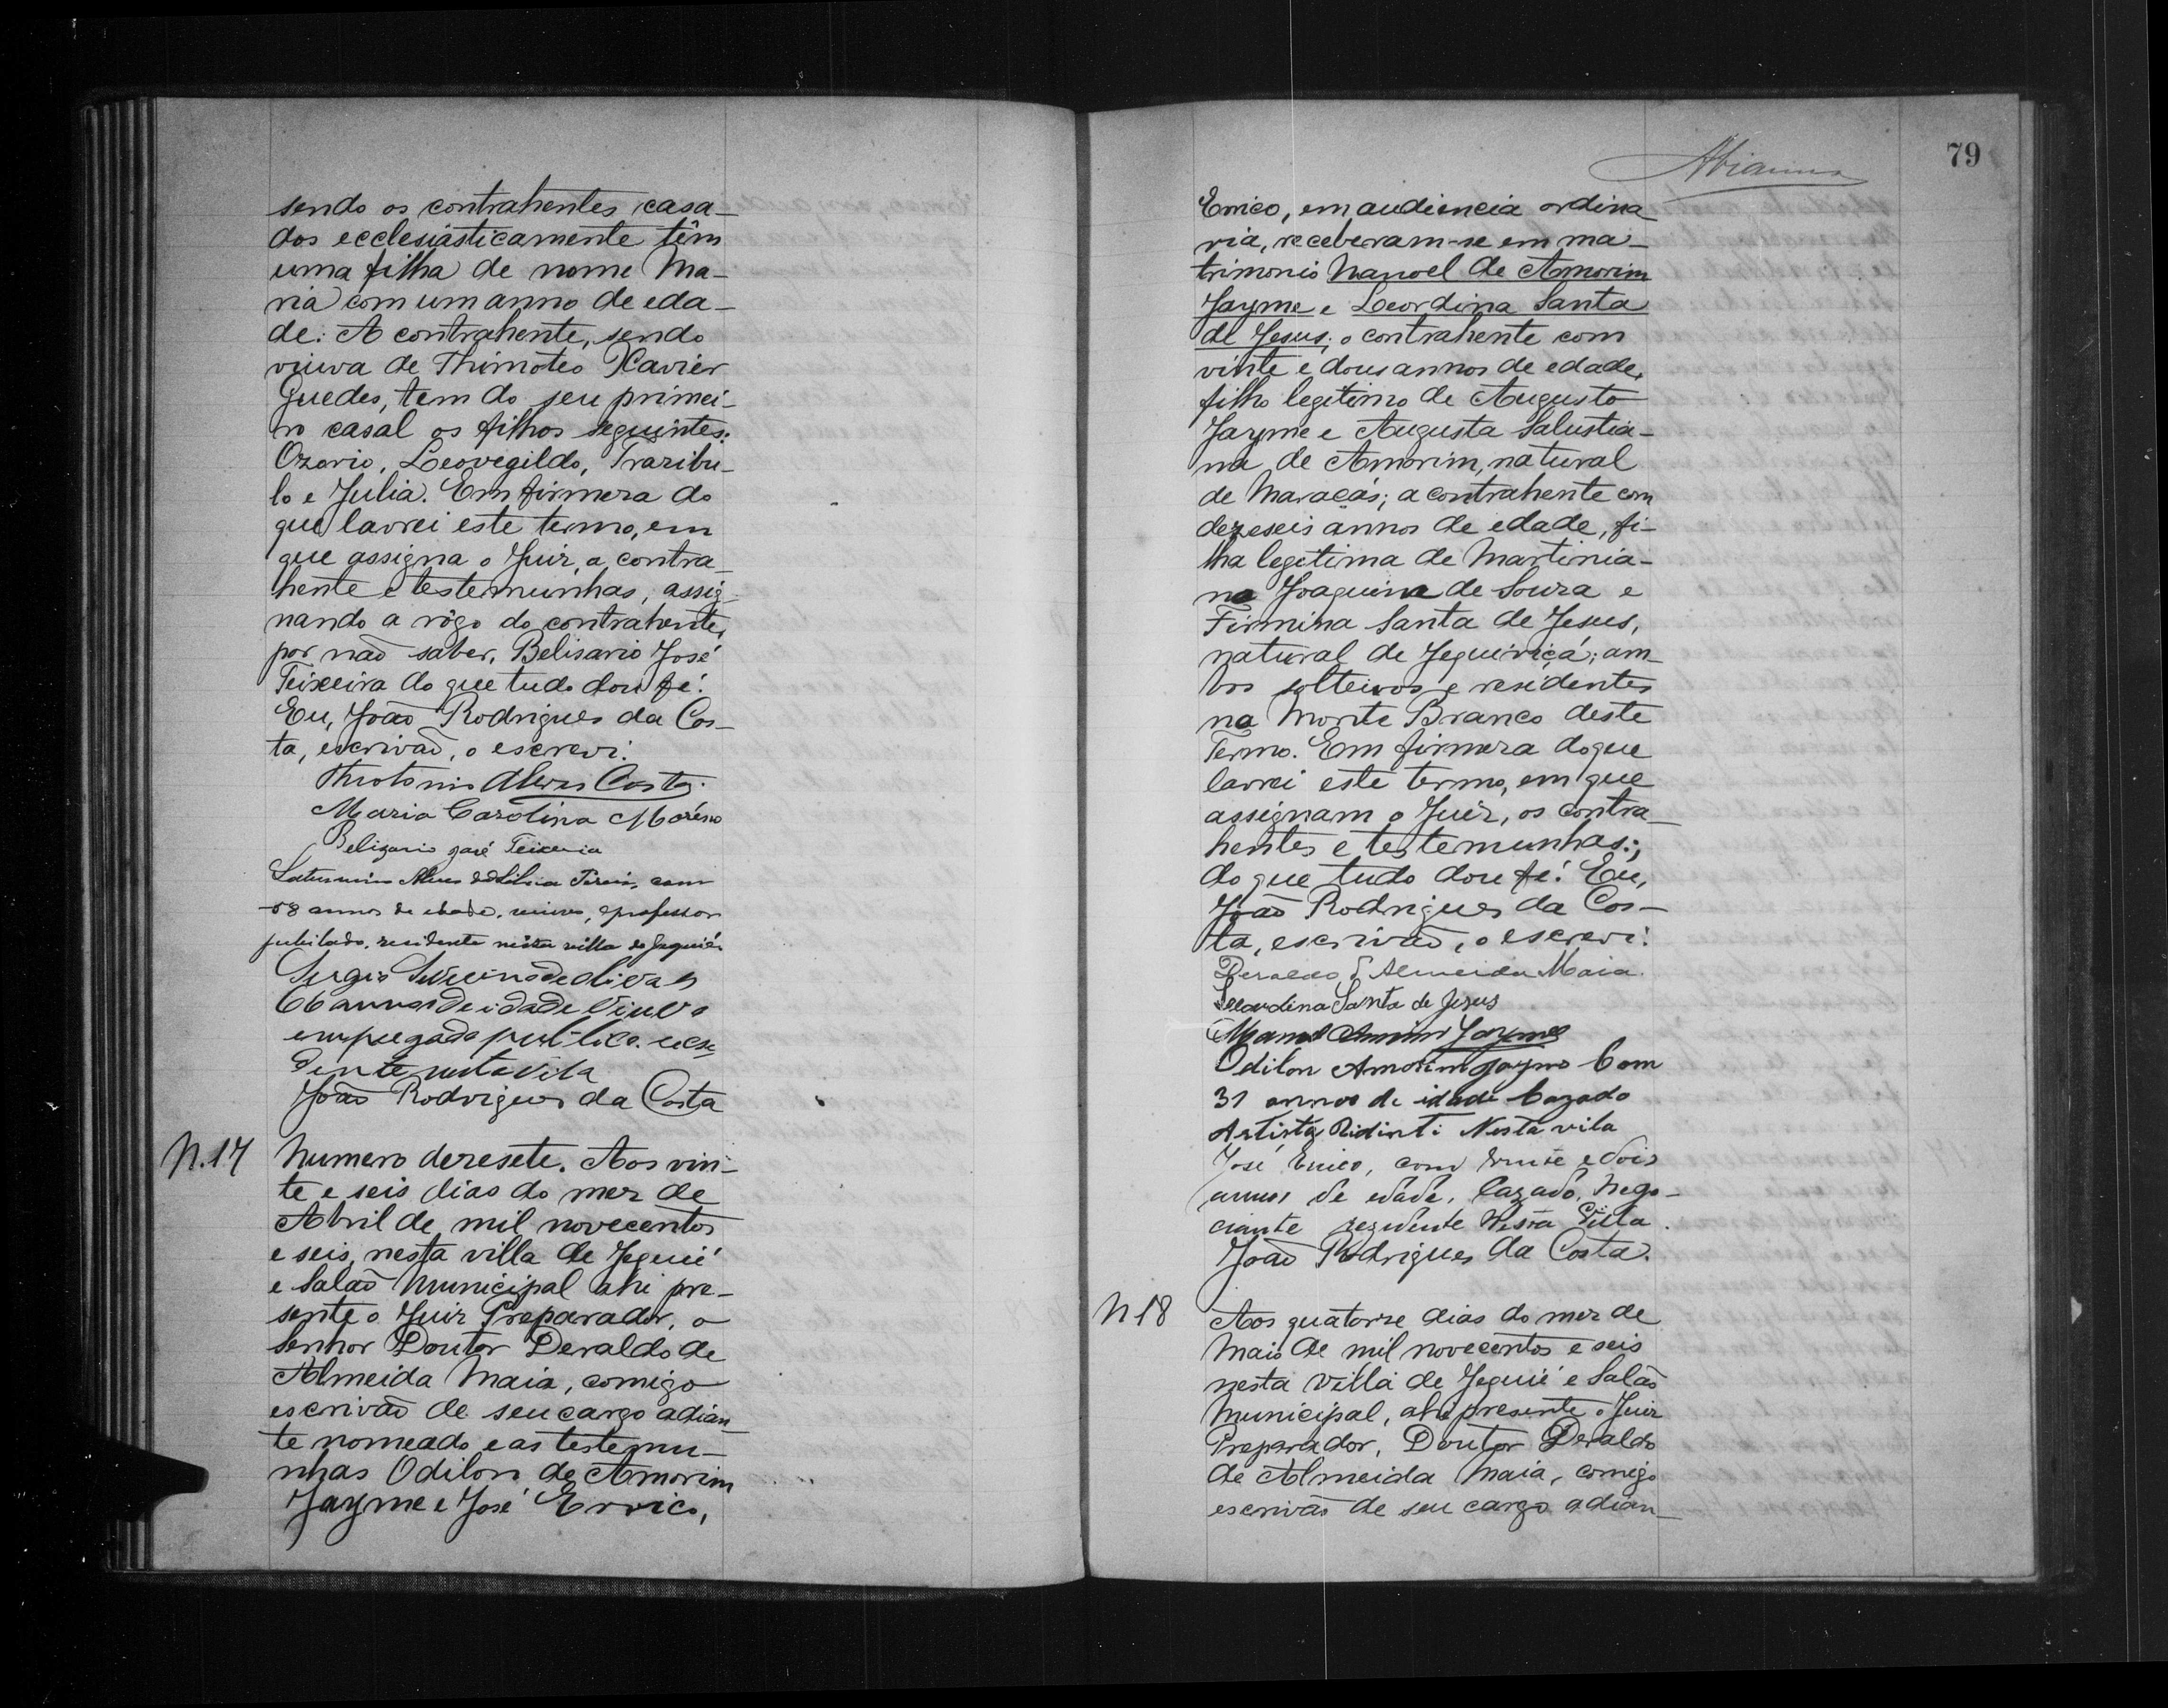 sendo os contrahentes casa-
dos ecclesiasticamente têm
uma filha de nome Ma-
ria com um anno de eda-
de: A contrahente, sendo
viuva de Thimoteo Xavier
Guedes, tem do seu primei-
ro casal os filhos seguintes:
Ozorio, Leovegildo, Trazibu-
lo e Julia. Em firmeza do
que lavrei este termo, em
que assigna o Juiz, a contra-
hente e testemunhas, assig-
nando a rôgo do contrahente,
por não saber, Belisario José
Teixeira do que tudo dou fé.
Eu, João Rodrigues da Cos-
ta, escrivão, o escrevi.
Theotonio Alves Costa.
Maria Carolina Moréno
Belizario José Teixeira
Saturnino Alves da Silva com
58 annos de edade, viuvo, professor
jubilado, residente nésta villa de Jequié.
Sergio
66 annos de idade Viuvo
empregado publico. rese
dente nesta Vila
João Rodrigues da Costa
N. 17 Numero dezesete. Aos vin-
te e seis dias do mez de
Abril de mil novecentos
e seis, nesta villa de Jequié
e Salão Municipal ahi pre-
sente o Juiz Preparador, o
Senhor Doutor Deraldo de
Almeida Maia, comigo
escrivão de seu cargo adian-
te nomeado e as testemu-
nhas Odilon de Amorim
Jayme e José Errico,
79
Errico, em audiencia ordina-
ria, receberam-se em ma-
trimonio Manoel de Amorim
Jayme e Leordina Santa
de Jesus; o contrahente com
vinte e dous annos de edade,
filho legitimo de Augusto
Jayme e Augusta Salustia-
na de Amorim, natural
de Maracás; a contrahente com
dezeseis annos de edade, fi-
lha legitima de Martinia-
no Joaquim de Souza e
Firmina Santa de Jesus,
natural de Jequiriçá; am-
bos solteiros e residentes
no Monte Branco deste
Termo. Em firmeza do que
lavrei este termo, em que
assignam o Juiz, os contra-
hentes e testemunhas;
do que tudo dou fé. Eu,
João Rodrigues da Cos-
ta, escrivão, o escrevi.
Deraldo d'Almeida Maia.
Leordina Santa de Jezus
Manoel Amorim Jayme
Odilon Amorim Jayme Com
31 annos de idade Cazado
Artista Nesta vila
José Errico, com trinta e dois
annos de edade, Cazado, Nego-
ciante rezidente Nesta Villa.
João Rodrigues da Costa.
N 18 Aos quatorze dias do mez de
Maio de mil novecentos e seis
nesta Villa de Jequié e Salão
Municipal, ahi presente o Juiz
Preparador, Doutor Deraldo
de Almeida Maia, comigo
escrivão de seu cargo adian-